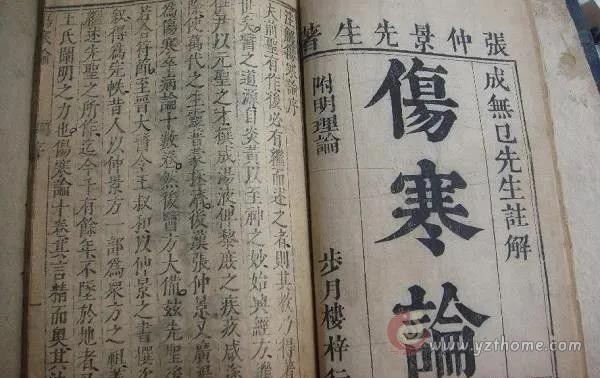 張仲景先生著
成無已先生註解
傷寒論
附明理論
步月樓梓行
註解傷寒論序
夫前聖有作後必有繼而述之者則其教乃得著
世矣醫之道源自炎黃以至神之妙始興經方
伊尹以元聖之才撰成湯液俾黎庶之疾疢咸
使萬代之生靈普蒙拯濟後漢張仲景又廣
為傷寒卒病論十數卷然後醫方大備茲先聖後
若合符節至晉太醫令王叔和以仲景之書撰次
敘得為完帙昔人以仲景方一部為衆方之祖
繼述先聖之所作迄今千有餘年不墜於地者
王氏闡明之力也傷寒論十卷其言精而奧其法
傷寒論
www.yzthome.com